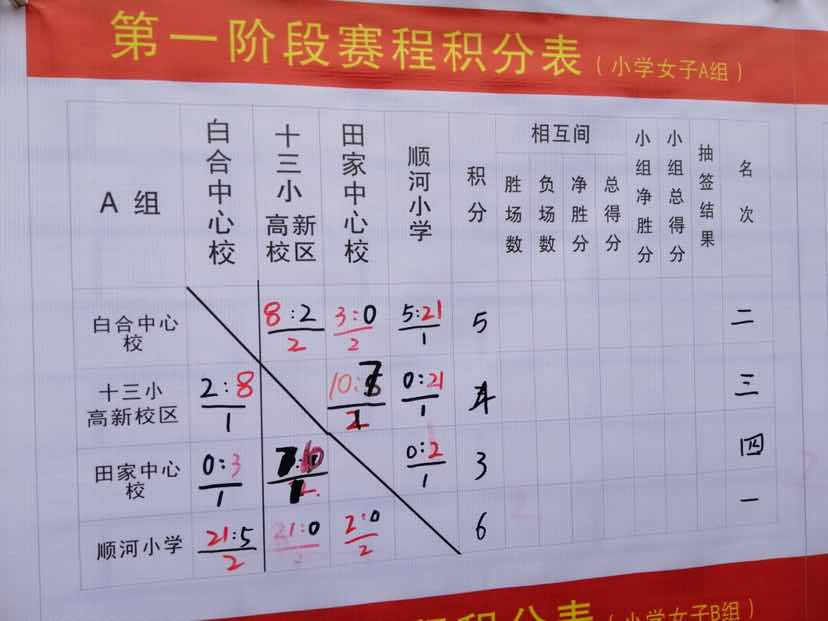 第一阶段赛程积分表（小学女子A组）
A 组 白合中心校 十三小高新校区 田家中心校 顺河小学 积分 相互间 胜场数 负场数 净胜分 总得分 小组净胜分 小组总得分 抽签结果 名次
白合中心校 8:2 2 3:0 2 5:21 1 5 二
十三小高新校区 2:8 1 10:7 2 0:21 1 4 三
田家中心校 0:3 1 7:10 1 0:2 1 3 四
顺河小学 21:5 2 21:0 2 2:0 2 6 一
积分表（小学女子B组）